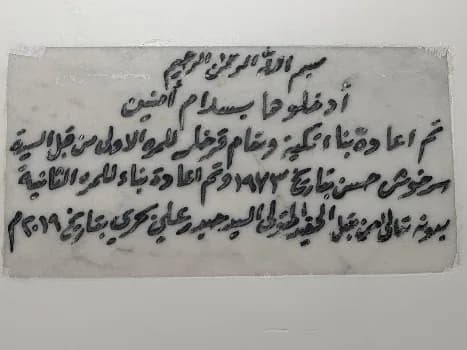 بسم الله الرحمن الرحيم
أدخلوها بسلام آمنين
تم اعادة بناء تكية ومقام قرخلر للمرة الاولى من قبل السيدة
سرخوش حسن بتاريخ ١٩٧٣ وتم اعادة بناء للمرة الثانية
بعونه تعالى من قبل الحفيد المتولي السيد حيدر علي بحري بتاريخ ٢٠١٩ م